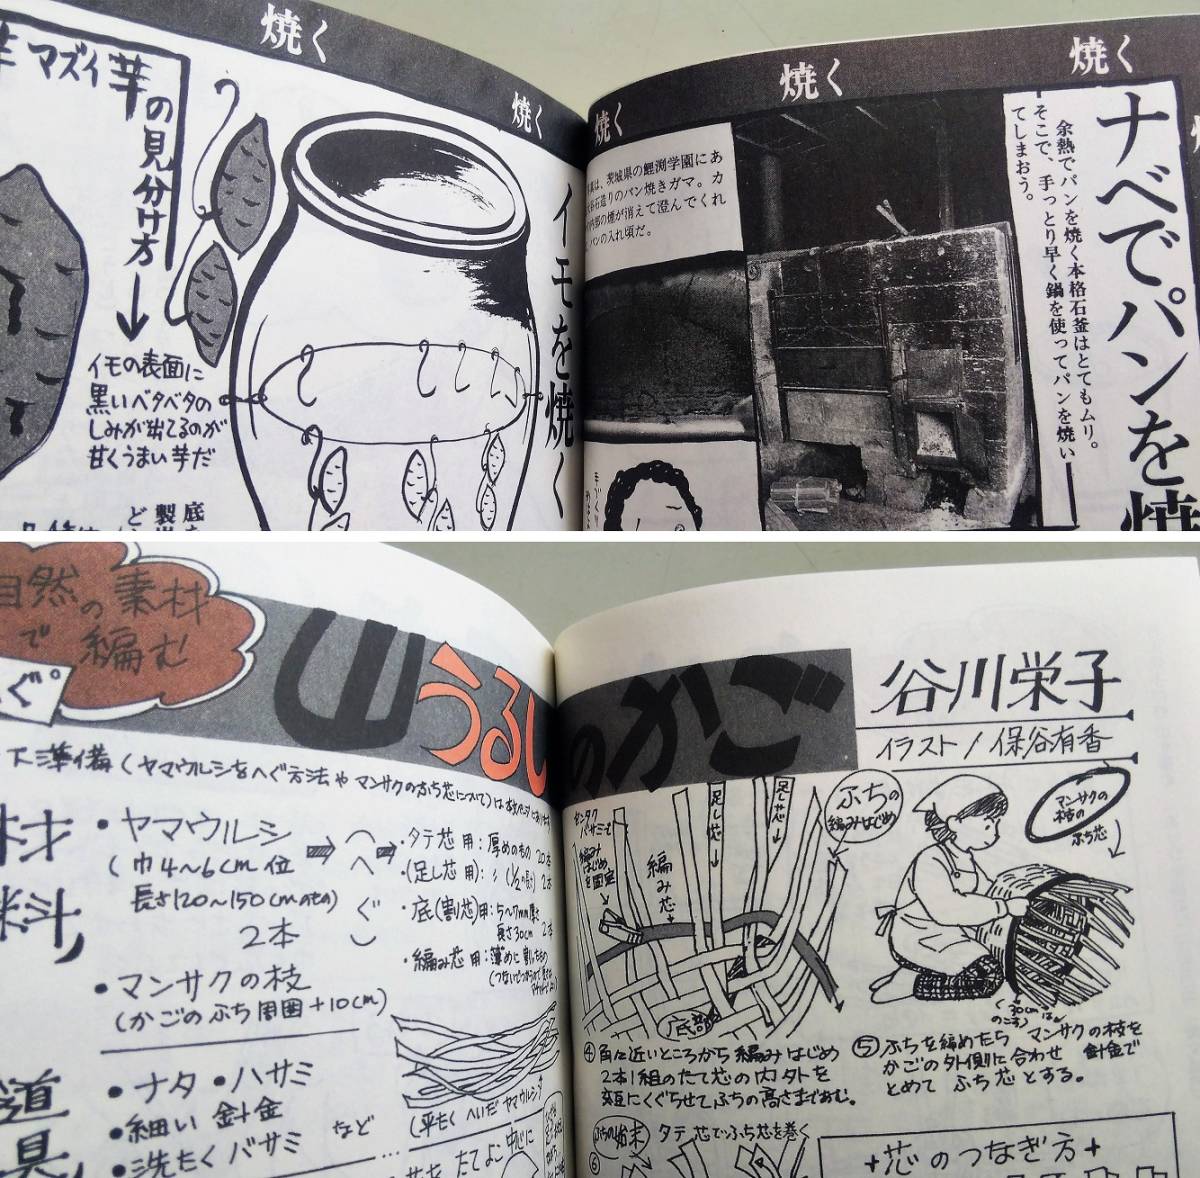 焼く
焼く
マズイ芋の見分け方
イモの表面に
黒いベタベタの
しみが出てるのが
甘くうまい芋だ
イモを焼く
焼く
焼く
焼く
ナベでパンを焼
余熱でパンを焼く本格石釜はとてもムリ。
そこで、手っとり早く鍋を使ってパンを焼い
てしまおう。
は、茨城県の鯉渕学園にあ
石造りのパン焼きガマ。カ
内部の煙が消えて澄んでくれ
パンの入れ頃だ。
自然の素材
で編む
山うるし
のかご
谷川栄子
イラスト/保谷有香
下準備(ヤマウルシをへぐ方法やマンサクのふち芯について)は本文ページにあり
材料
・ヤマウルシ
(巾4〜6cm位
長さ120〜150cmのもの)
2本
へぐ
・タテ芯用:厚めのもの 20本
・(足し芯用):〃(1/2の長さ) 2本
・底(割芯)用:5〜7mm厚さ
長さ30cm 2本
・編み芯用:薄めに割ったもの
・マンサクの枝
(かごのふち周囲+10cm)
道具
・ナタ・ハサミ
・細い針金
・洗たくバサミ など…
(平もくへいだヤマウルシ
たてよこ中心に
センタク
バサミで
編み
はじめ
を固定
編み芯
足し芯
足し芯
底部
ふちの
編みはじめ
マンサクの
枝の
ふち芯
(30cmほど
のこす)
④角に近いところから編みはじめ
2本1組のたて芯の内外を
交互にくぐらせてふちの高さまであむ。
⑤ふちを編めたらマンサクの枝を
かごの外側に合わせ針金で
とめてふち芯とする。
ふちの始末
タテ芯でふち芯を巻く
⑥
+芯のつなぎ方+